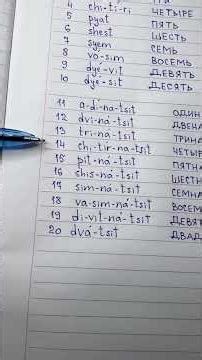 4 chi-ti-ri ЧЕТЫРЕ
5 pyat ПЯТЬ
6 shest ШЕСТЬ
7 syem СЕМЬ
8 vo-sim ВОСЕМЬ
9 dye-vit ДЕВЯТЬ
10 dye-sit ДЕСЯТЬ
11 a-di-na-tsit ОДИН
12 dvi-ná-tsit ДВЕНА
13 tri-ná-tsit ТРИНА
14 chi-tir-na-tsit ЧЕТЫР
15 pit-ná-tsit ПЯТНА
16 shis-ná-tsit ШЕСТН
17 sim-ná-tsit СЕМНА
18 va-sim-ná-tsit ВОСЕМ
19 di-vit-ná-tsit ДЕВЯТ
20 dvá-tsit ДВАД